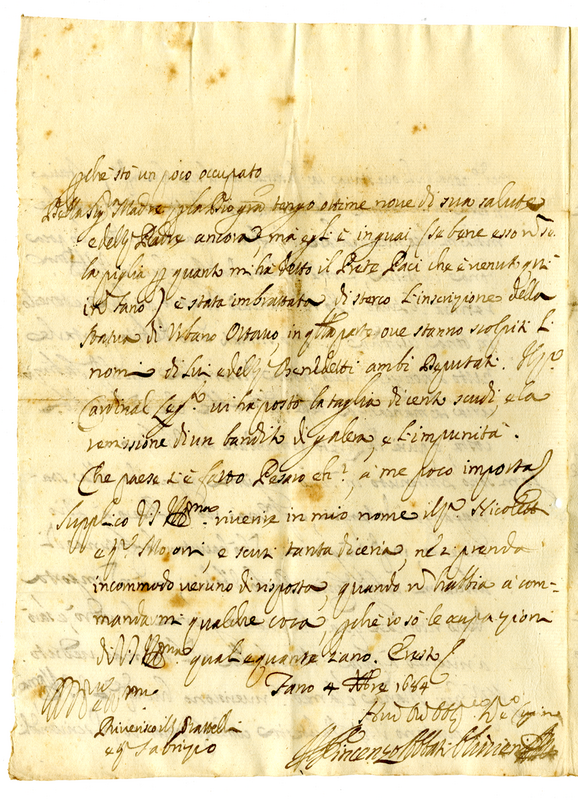 perche stò un poco occupato
Della Sig.ra Madre per la Dio gra tengo ottime nove di sua salute
e del Sig. Padre ancora, ma egli è in guai (se bene esso non se
la piglia per quanto mi ha detto il Prete Paci che è venuto qui
in Fano) è stata imbrattata di sterco l'inscrizione della
statua di Urbano Ottavo, in quella parte ove stanno scolpiti li
nomi di lui e del Sig. Benedetti ambi Deputati. Il Sig.r
Cardinal Leg.o vi ha posto la taglia di cento scudi, e la
remissione di un bandito di galera, e l'impunità.
Che paese s'è fatto Pesaro eh? a me poco importa
Supplico V.S. Ill.ma riverire in mio nome il Sig.r
e Sig.r e scusi tanta diceria, nè si prenda
incommodo veruno di risposta, quando non habbia a com=
mandarmi qualche cosa, perche io sò le occupazioni
di V.S. Ill.ma quali e quante siano. E resto
Fano 4 Xbre 1684
Riverisco il Sig. Fratello
e Sig. Fabrizio
Vincenzo Abbati Olivieri